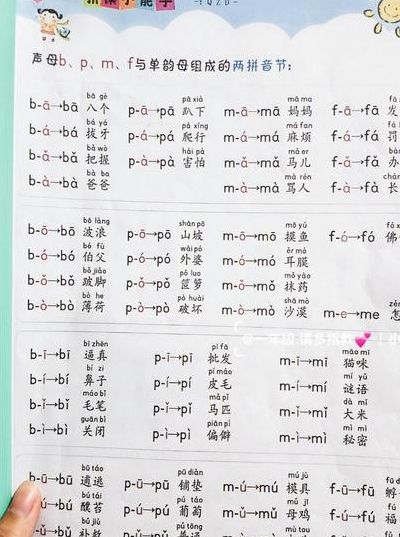 声母b、p、m、f与单韵母组成的两拼音节：
bā gè pā xià mā ma
b-ā→bā 八个 p-ā→pā 趴下 m-ā→mā 妈妈 f-ā→fā
bá yá pá xíng má fan
b-á→bá 拔牙 p-á→pá 爬行 m-á→má 麻烦 f-á→fá
bǎ wò hài pà
b-ǎ→bǎ 把握 p-à→pà 害怕 m-ǎ→mǎ 马儿 f-ǎ→fǎ
bà ba mà rén
b-à→bà 爸爸 m-à→mà 骂人 f-à→fà
bō làng shān pō
b-ō→bō 波浪 p-ō→pō 山坡 m-ō→mō 摸鱼 f-ó→fó 佛
bó fù wài pó ěr mó
b-ó→bó 伯父 p-ó→pó 外婆 m-ó→mó 耳膜
bǒ jiǎo pǒ luo mǒ yào
b-ǒ→bǒ 跛脚 p-ǒ→pǒ 笸箩 m-ǒ→mǒ 抹药
bò he pò huài shā mò
b-ò→bò 薄荷 p-ò→pò 破坏 m-ò→mò 沙漠 m-e→me
bī zhēn pī fā māo mī
b-ī→bī 逼真 p-ī→pī 批发 m-ī→mī 猫咪
bí zi pí máo mí yǔ
b-í→bí 鼻子 p-í→pí 皮毛 m-í→mí 谜语
máo bǐ mǎ pǐ dà mǐ
b-ǐ→bǐ 毛笔 p-ǐ→pǐ 马匹 m-ǐ→mǐ 大米
guān bì piān pì mì mì
b-ì→bì 关闭 p-ì→pì 偏僻 m-ì→mì 秘密
bū táo pū diàn mú jù
b-ū→bū 逋逃 p-ū→pū 铺垫 m-ú→mú 模具 f-ū→fū 孵
bú tái pú táo mǔ jī
b-ú→bú 醭苔 p-ú→pú 葡萄 m-ǔ→mǔ 母鸡 f-ú→fú 福